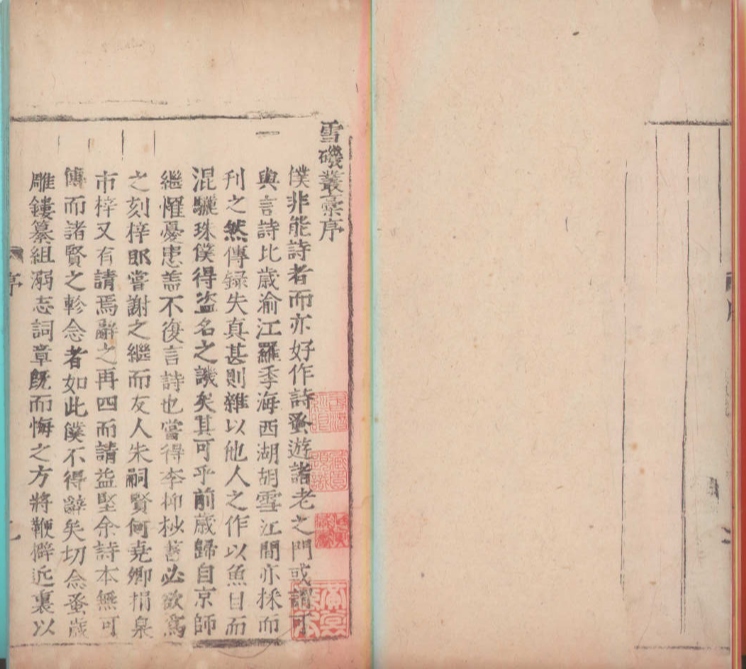 雪磯叢稾序
僕非能詩者而亦好作詩蚤遊諸老之門或謂可
與言詩比歲渝江羅季海西湖胡雪江間亦採而
刊之然傳録失真甚則雜以他人之作以魚目而
混驪珠僕得盗名之譏矣其可乎前歲歸自京師
繼罹憂患盖不復言詩也嘗得李抑杪舊必欲爲
之刻梓郎嘗謝之繼而友人朱嗣賢何堯卿捐泉
市梓又有請焉辭之再四而請益堅余詩本無可
傳而諸賢之軫念者如此僕不得辭矣切念蚤嵗
雕鏤纂組溺志詞章旣而悔之方將鞭辟近裏以
序